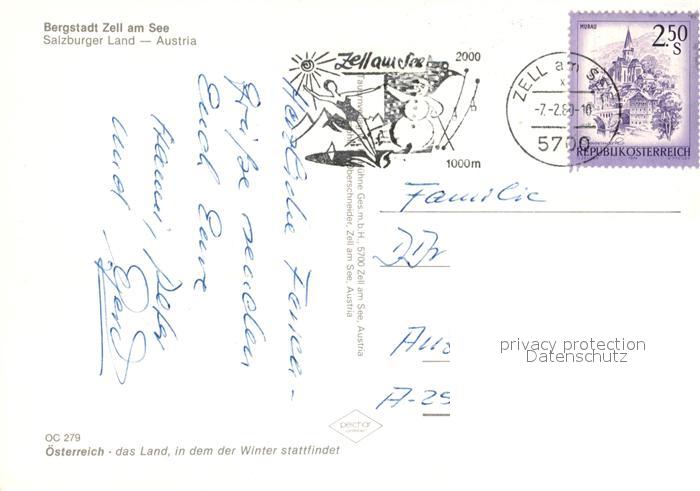 Bergstadt Zell am See
Salzburger Land — Austria
Zell am See
2000
1000m
ZELL am SEE
-7.-2.80-10
5700
MURAU
2.50
S
REPUBLIK ÖSTERREICH
Herzliche Ferien-
Grüße senden
Euch Eure
und
Familie
DDr
A-25
Ges.m.b.H., 5700 Zell am See, Austria
Oberschneider, Zell am See, Austria
privacy protection
Datenschutz
peichär
OC 279
Österreich - das Land, in dem der Winter stattfindet